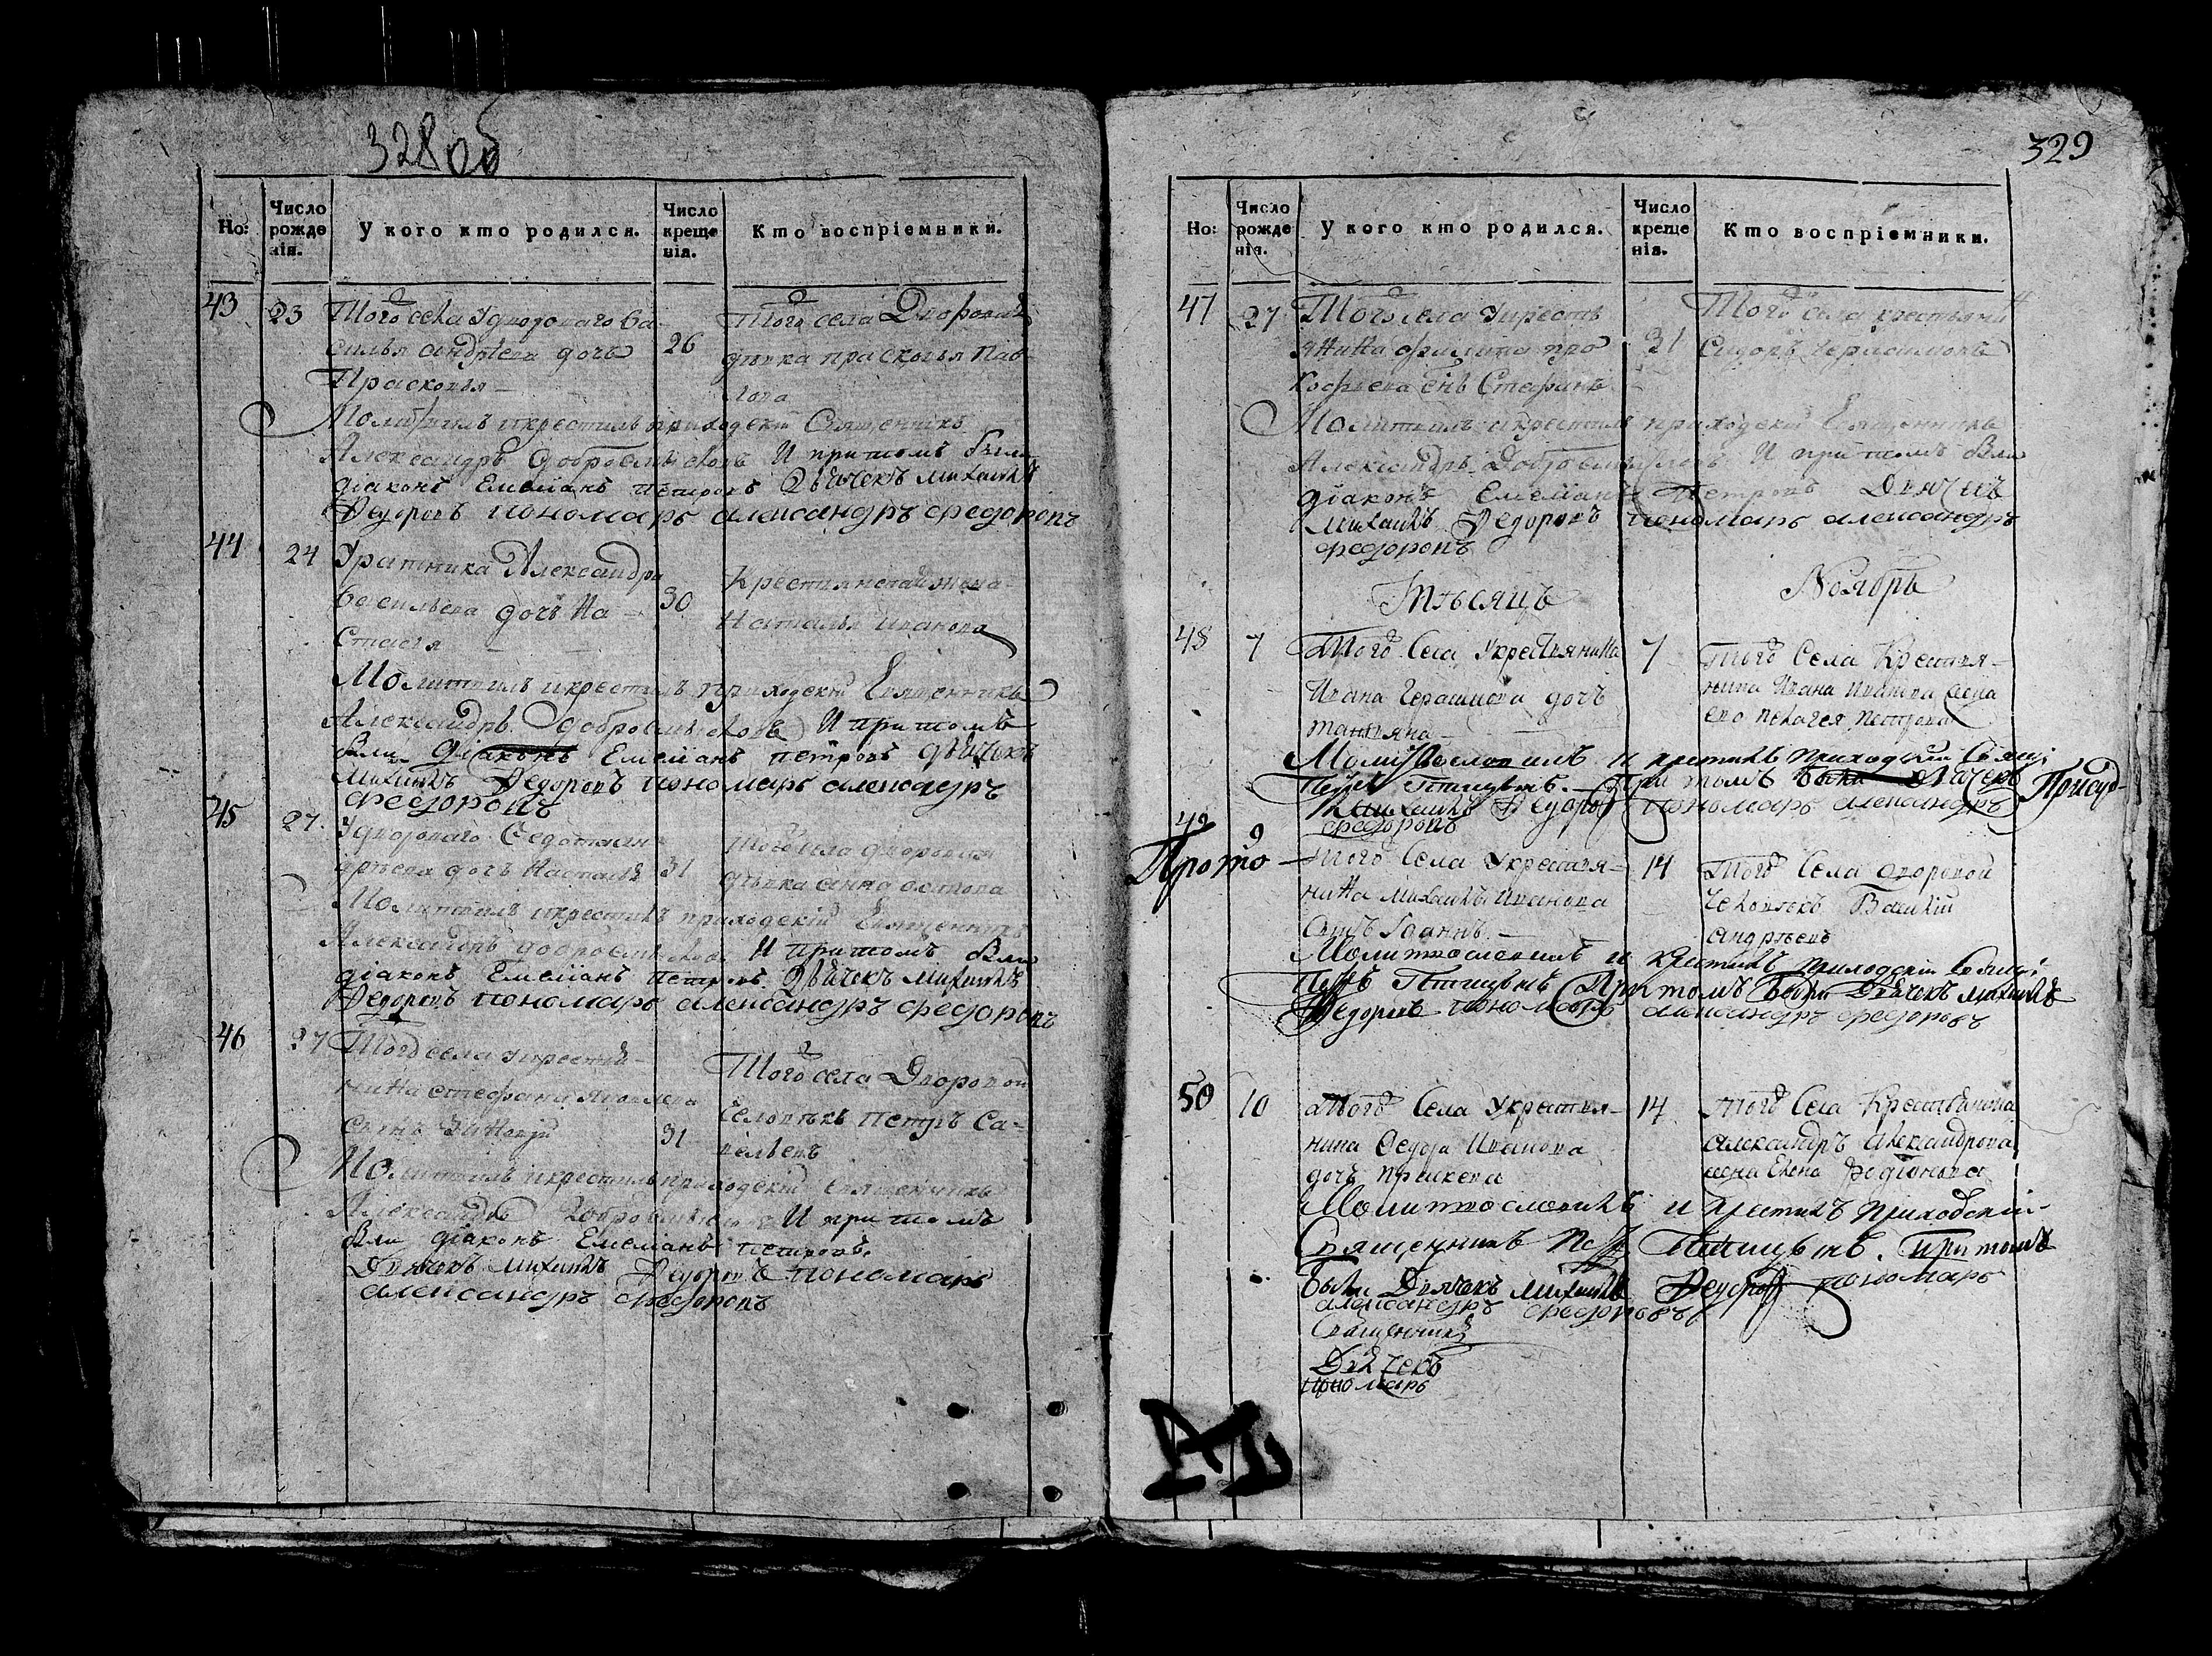 328 об
Но:
Число рожденія.
У кого кто родился.
Число крещенія.
Кто воспріемники.
43
23
Того села у двороваго Ва
силья Андреева дочь
Прасковья
26
Того села Дворовая
девка Прасковья Пав
лова
Молитвилъ и крестилъ приходскій Священникъ
Александръ И при томъ были
діаконъ Емеліанъ Петровъ Дьячекъ Михаилъ
Федоровъ пономарь александръ федоровъ
44
24
У ратника Александра
Васильева дочь На
стасья
30
Крестьянская жена
Наталья Иванова
Молитвилъ и крестилъ приходскій Священникъ
Александръ И при томъ
были діаконъ Емеліанъ петровъ дьячекъ
Михаилъ Федоровъ пономарь александръ
федоровъ
45
27
У двороваго Федота Ан
дреева дочь Настасья
31
Того села дворовая
девка Анна
Молитвилъ и крестилъ приходскій Священникъ
Александръ И при томъ были
діаконъ Емеліанъ петровъ Дьячекъ Михаилъ
Федоровъ пономарь александръ федоровъ
46
27
Того села у крестья
нина Стефана Яковлева
сынъ
31
Того села Дворовой
человекъ Петръ Са
вельевъ
Молитвилъ и крестилъ приходскій священникъ
Александръ И при томъ
были діаконъ Емеліанъ петровъ
Дьячекъ Михаилъ Федоровъ пономарь
александръ федоровъ
329
Но:
Число рожденія.
У кого кто родился.
Число крещенія.
Кто воспріемники.
47
27
Того села у кресть
янина Филипа Про
кофьева сынъ Стефанъ
31
Того села крестьянин
Сидоръ Герасимовъ
Молитвилъ и крестилъ приходскій Священникъ
Александръ И при томъ были
діаконъ Емеліанъ Петровъ Дьячекъ
Михаилъ Федоровъ пономарь александръ
федоровъ
Месяцъ
Ноябрь
48
7
Того Села У крестьянина
Ивана Герасимова дочь
татьяна
7
Того Села Крестья
нина Ивана Иванова жена
ево пелагея петрова
Молитвословилъ и крестилъ приходскій Свящ:
Петръ Птицынъ. При томъ были Дьячекъ
Михаилъ Федоров пономарь александръ
федоровъ
49
9
Того Села У крестья
нина Михаила Иванова
сынъ Іоаннъ
14
Того Села дворовой
человекъ Василий
андреевъ
Молитвословилъ и крестилъ приходскій Свящ:
Петръ Птицынъ При томъ были Дьячекъ Михаилъ
Федоровъ пономарь александръ федоровъ
50
10
Того Села У крестья
нина Федора Иванова
дочь
14
Того Села Крестьянина
александръ александрова
жена Елена Родіонова
Молитвословилъ и крестилъ приходскій
Священникъ Петръ Птицынъ. При томъ
были Дьячекъ Михаилъ Федоров пономарь
александръ федоровъ
Священникъ
Дьячекъ
пономарь